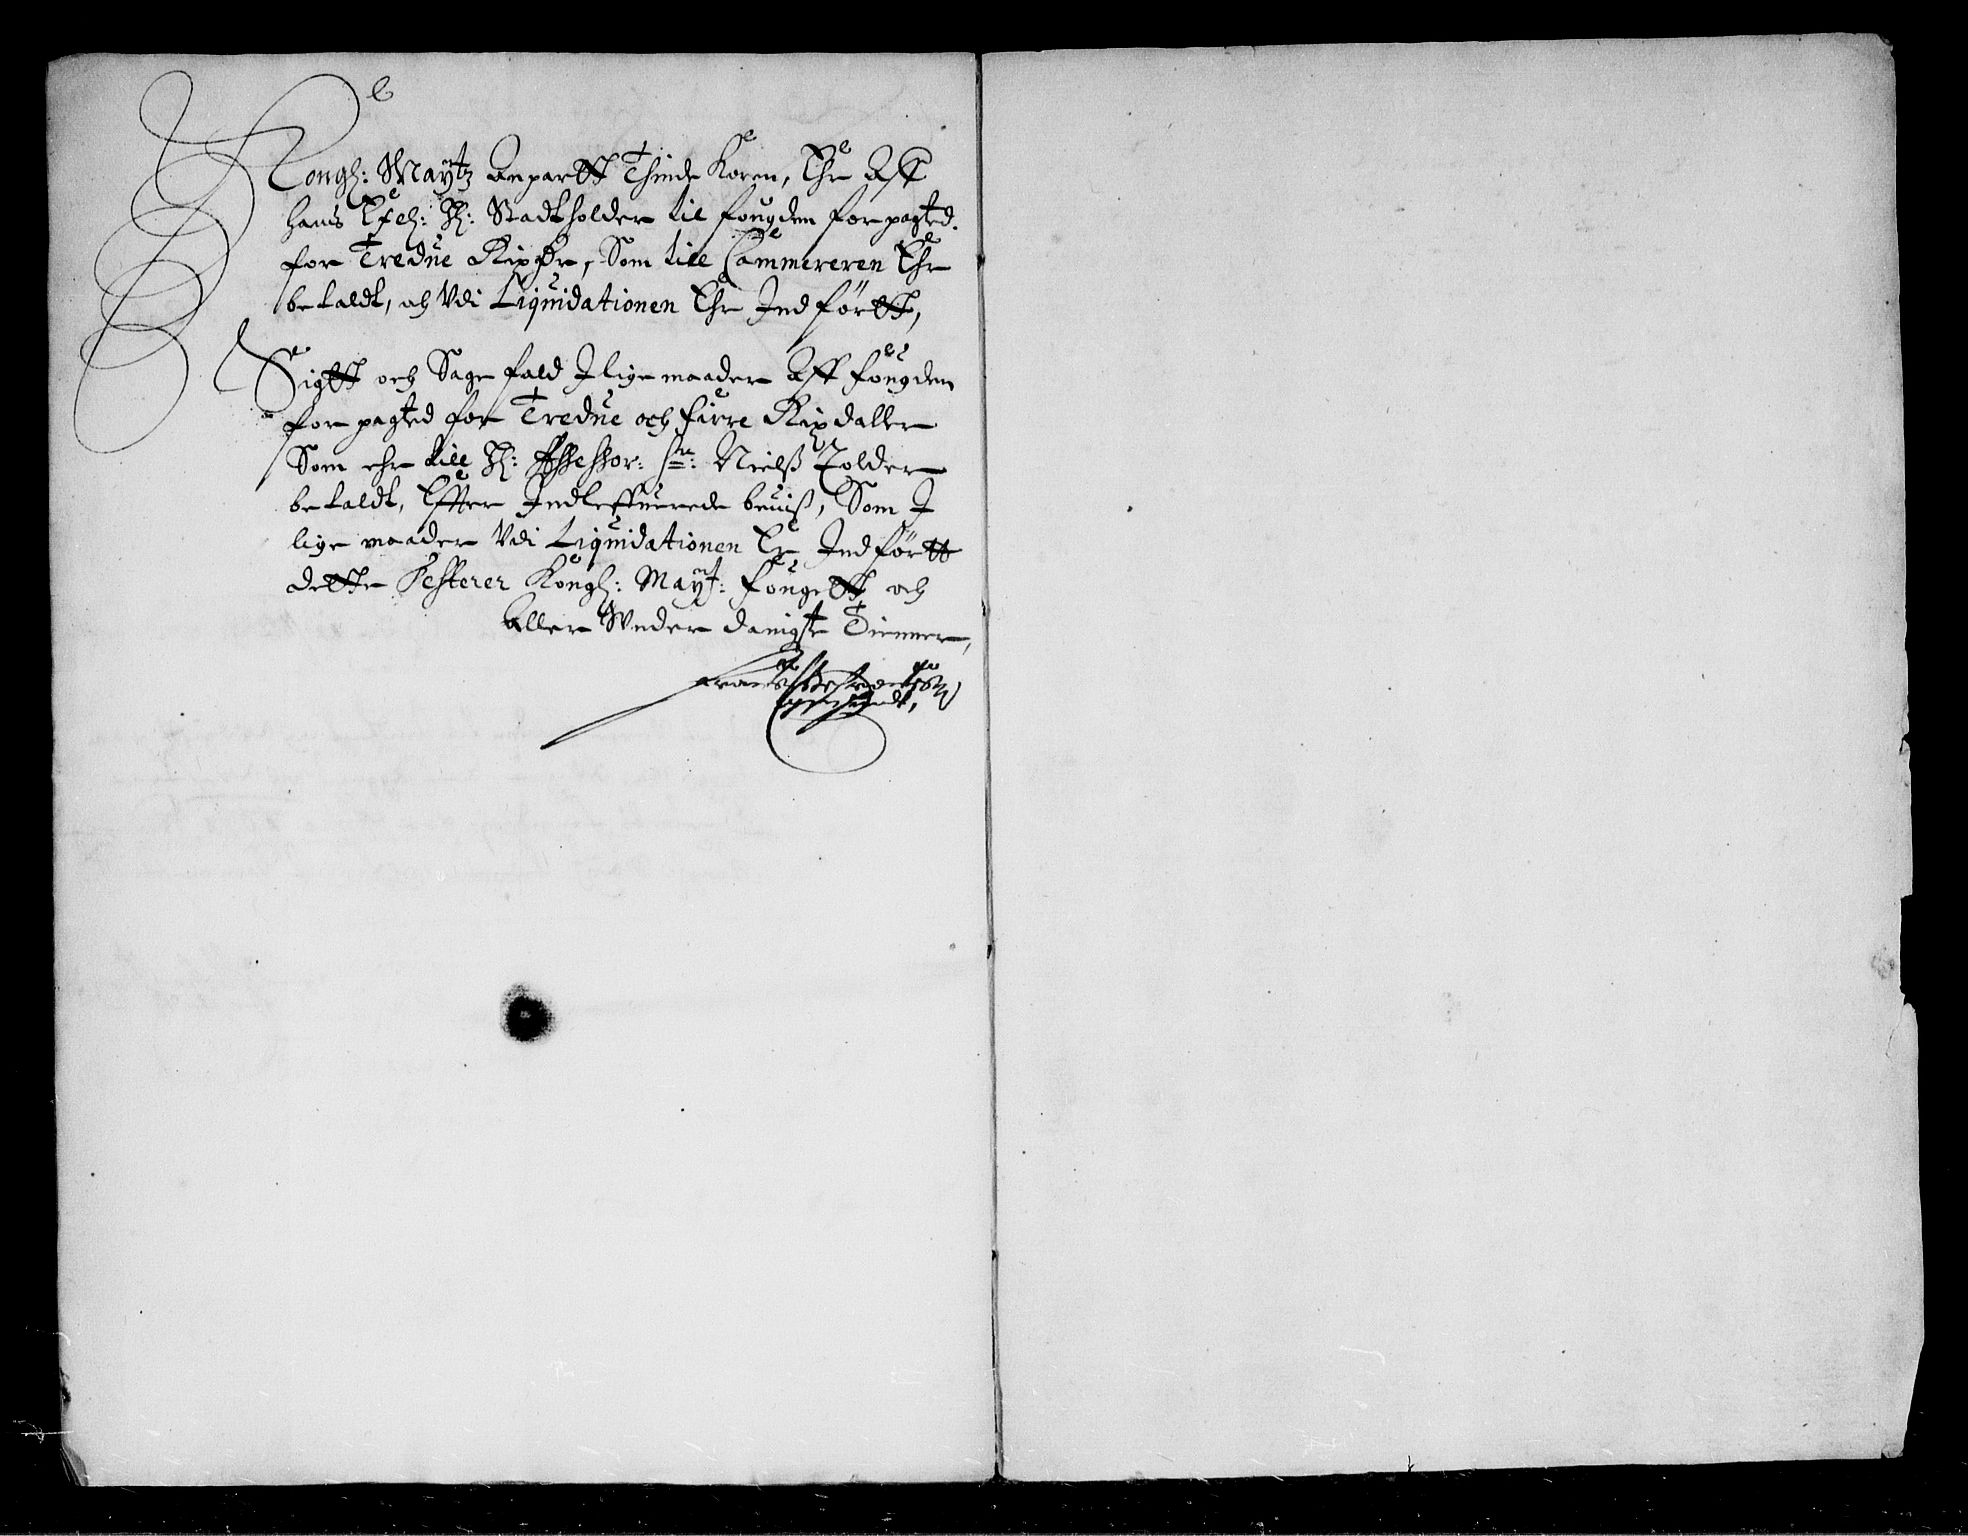 Kongl: Maytz Anpartt Thiinde Koren, Ehr Aff
hans Exel: H: Stadtholder til fougden forpagted
for Tredue Rixdr, Som till Cammereren Ehr
betaldt, och Vdi Liquidationen Ehr Indførtt,
Sigtt och Sagefald J lige maader Aff fougden
forpagted for Tredue och fiire Rixdaller
Som ehr till H: Assessor: Sr: Nielß Tolder
betaldt, Effter Indleffuerede beuiß, Som J
lige maader Vdi Liquidationen Er Indførtt
dette Testerer Kongl: Mayt: fougett och
Aller Vnder danigste Tienner,